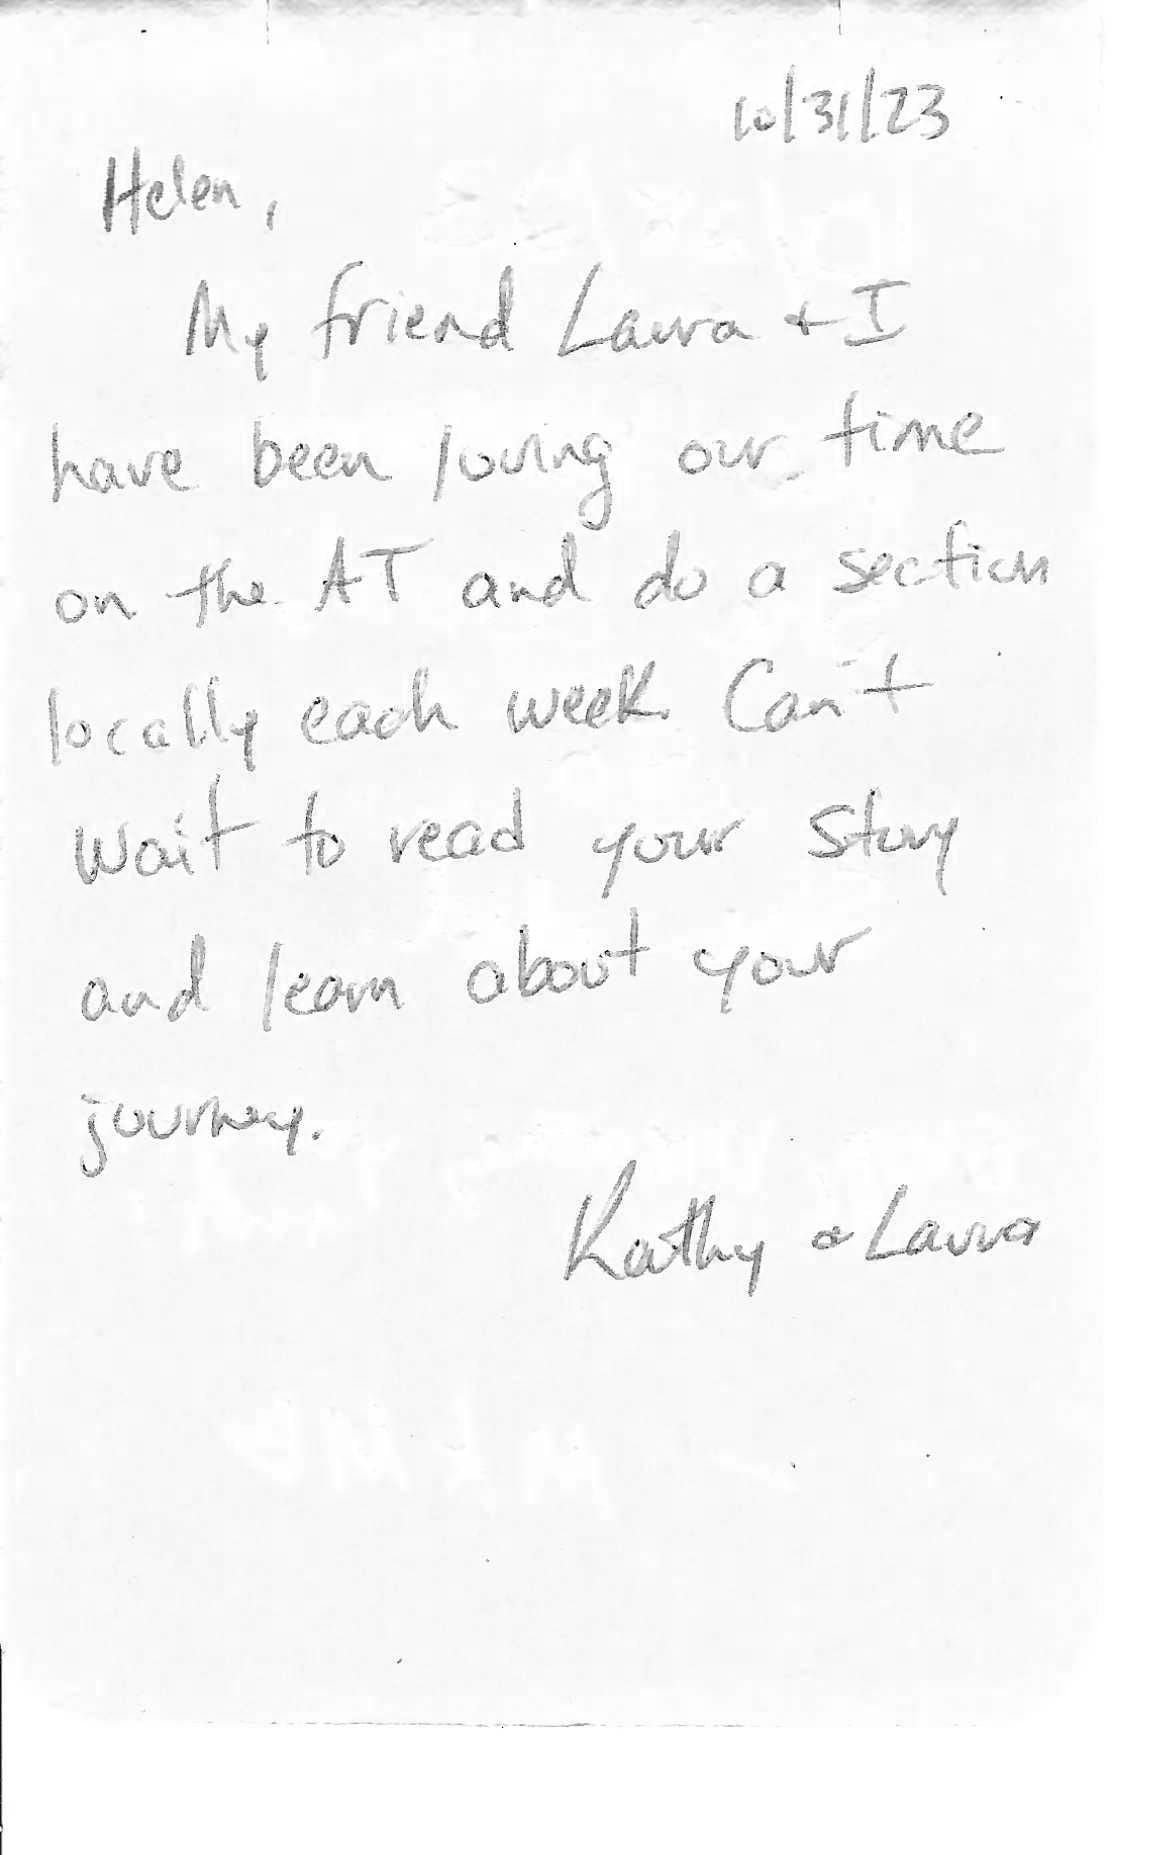 10/31/23
Helen,
My friend Laura + I
have been loving our time
on the AT and do a section
locally each week. Can't
wait to read your story
and learn about your
journey.
Kathy & Laura